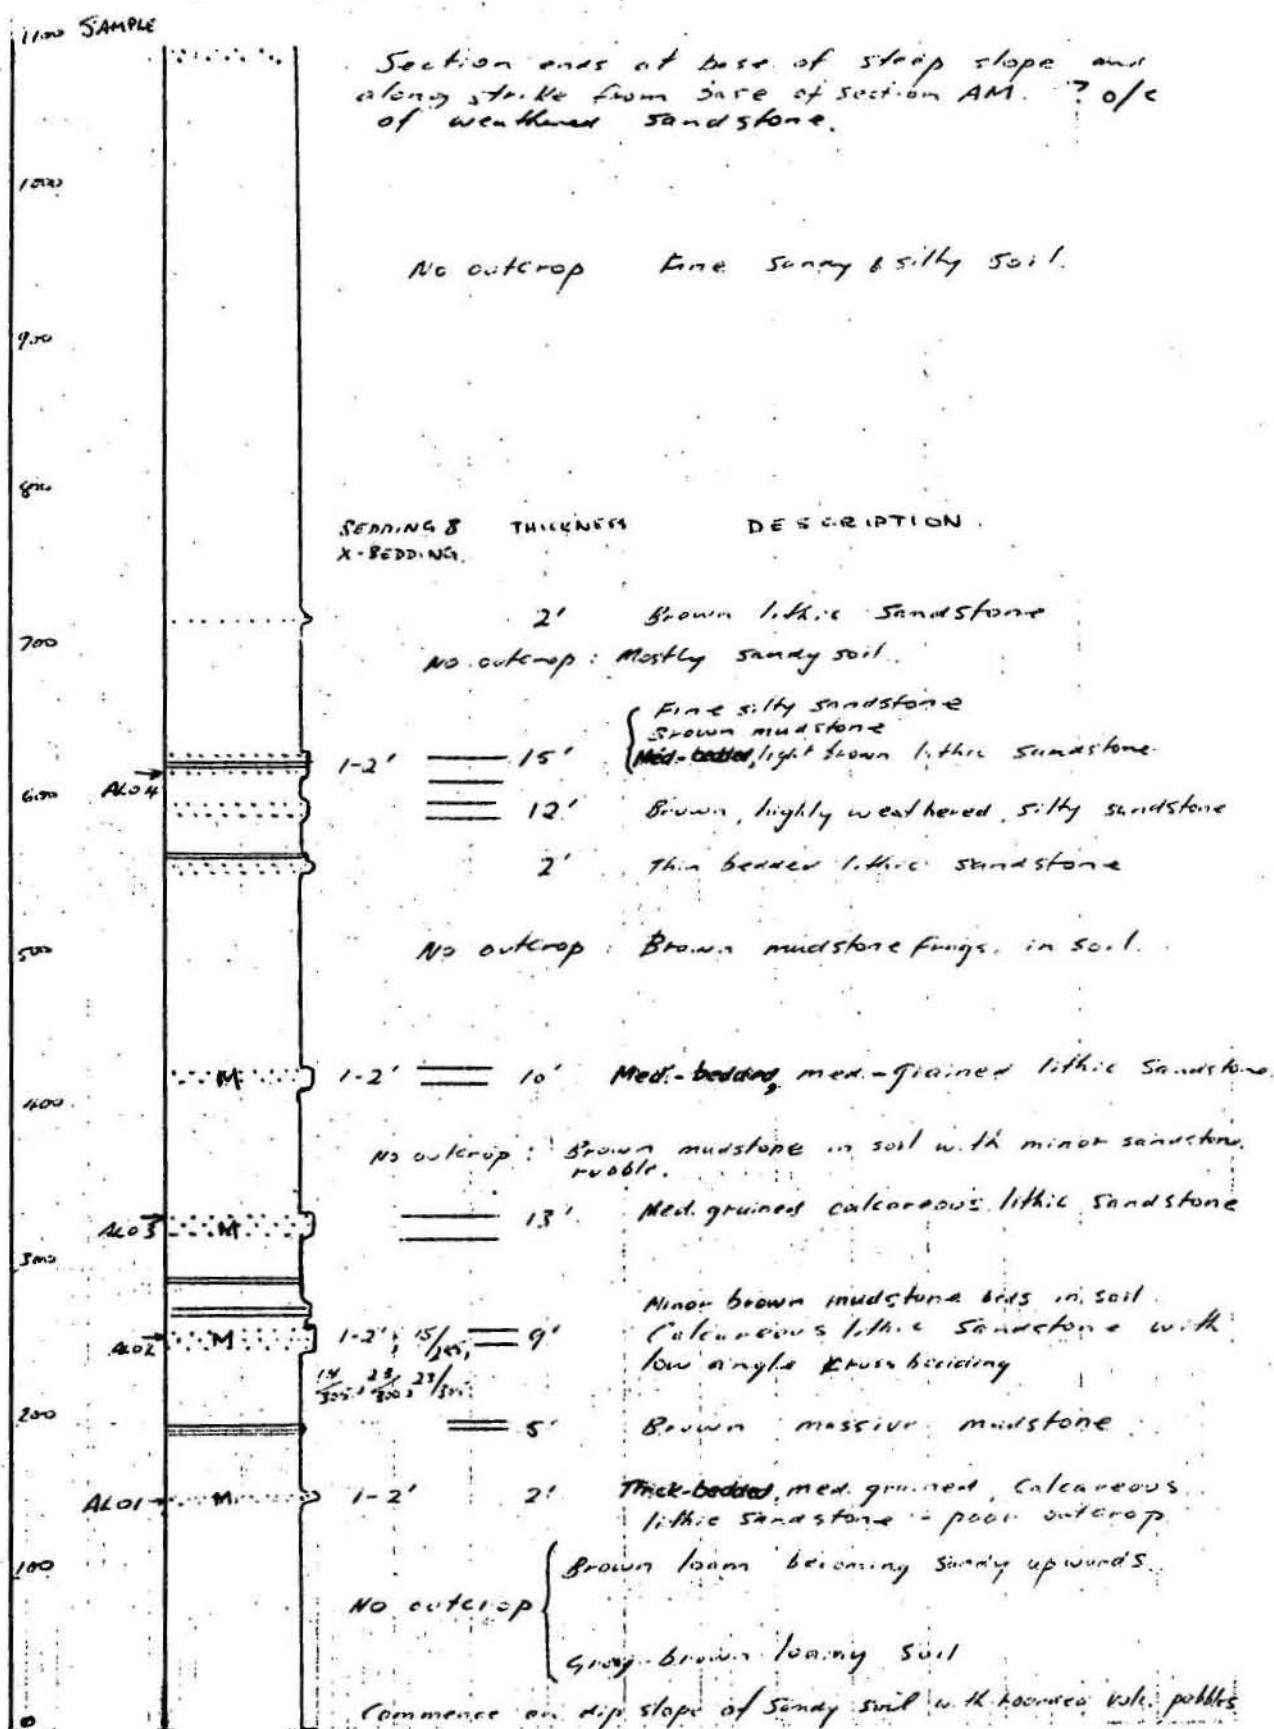 1100 SAMPLE
Section ends at base of steep slope and
along strike from base of section AM. ? o/c
of weathered sandstone.
1000
No outcrop Fine sandy & silty soil.
900
800
BEDDING & THICKNESS DESCRIPTION.
X-BEDDING.
2' Brown lithic sandstone
700
No outcrop : Mostly sandy soil.
Fine silty sandstone
Brown mudstone
1-2' 15' Med.-bedded, light brown lithic sandstone
AL04
600
12' Brown, highly weathered, silty sandstone
2' Thin bedded lithic sandstone
500
No outcrop : Brown mudstone frags. in soil.
M 1-2' 10' Med.-bedded, med.-grained lithic sandstone.
400
No outcrop : Brown mudstone in soil with minor sandstone
rubble.
AL03 M 13' Med. grained calcareous lithic sandstone
300
Minor brown mudstone beds in soil
AL02 M 1-2', 15/ 9' Calcareous lithic sandstone with
low angle cross bedding
200
5' Brown massive mudstone
AL01 M 1-2' 2' Thick-bedded, med. grained, calcareous
lithic sandstone - poor outcrop
100
Brown loam becoming sandy upwards.
No outcrop
Grey-brown loamy soil
0
Commence on dip slope of sandy soil with rounded volc. pebbles